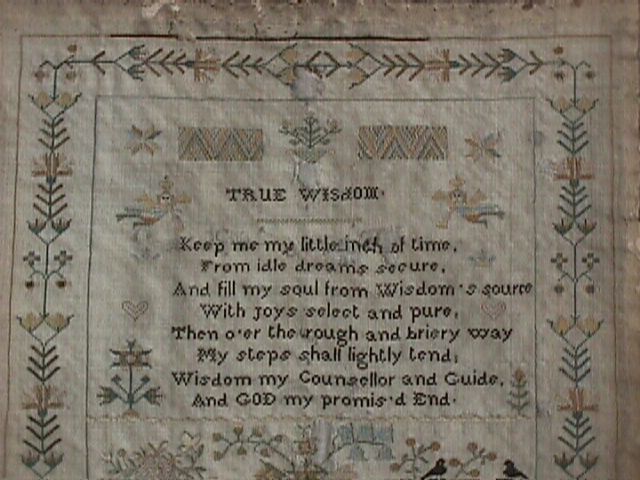 TRUE WISdOM.
Keep me my little inch of time,
From idle dreams secure,
And fill my soul from Wisdom's source
With joys select and pure,
Then o'er the rough and briery way
My steps shall lightly tend;
Wisdom my Counsellor and Guide,
And GOD my promis'd End.